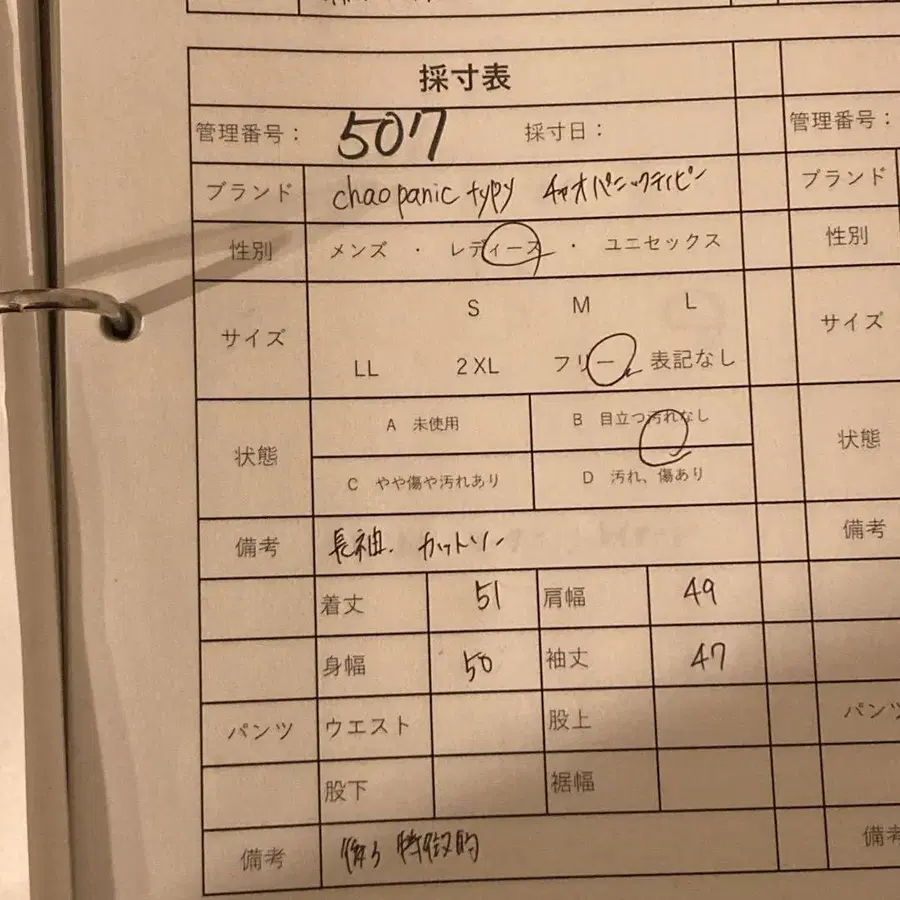 採寸表
管理番号： 507 採寸日： 管理番号：
ブランド chaopanic typy チャオパニックティピー ブランド
性別 メンズ ・ レディース ・ ユニセックス 性別
S M L
サイズ サイズ
LL 2XL フリー 表記なし
A 未使用 B 目立つ汚れなし
状態 状態
C やや傷や汚れあり D 汚れ、傷あり
備考 長袖. カットソー 備考
着丈 51 肩幅 49
身幅 50 袖丈 47
パンツ ウエスト 股上 パンツ
股下 裾幅
備考 後ろ 特徴的 備考